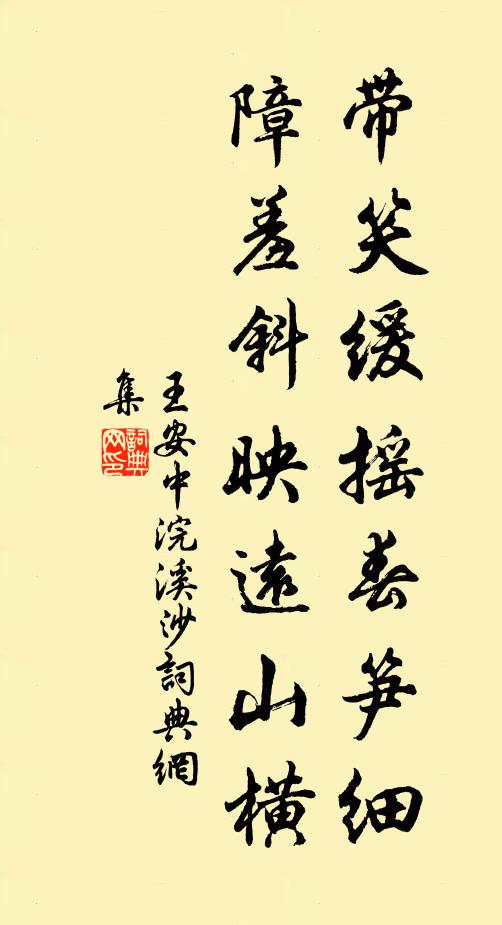 带笑缓摇春笋细
障羞斜映遠山横
王安中浣溪沙詞典網
集
詞典网印